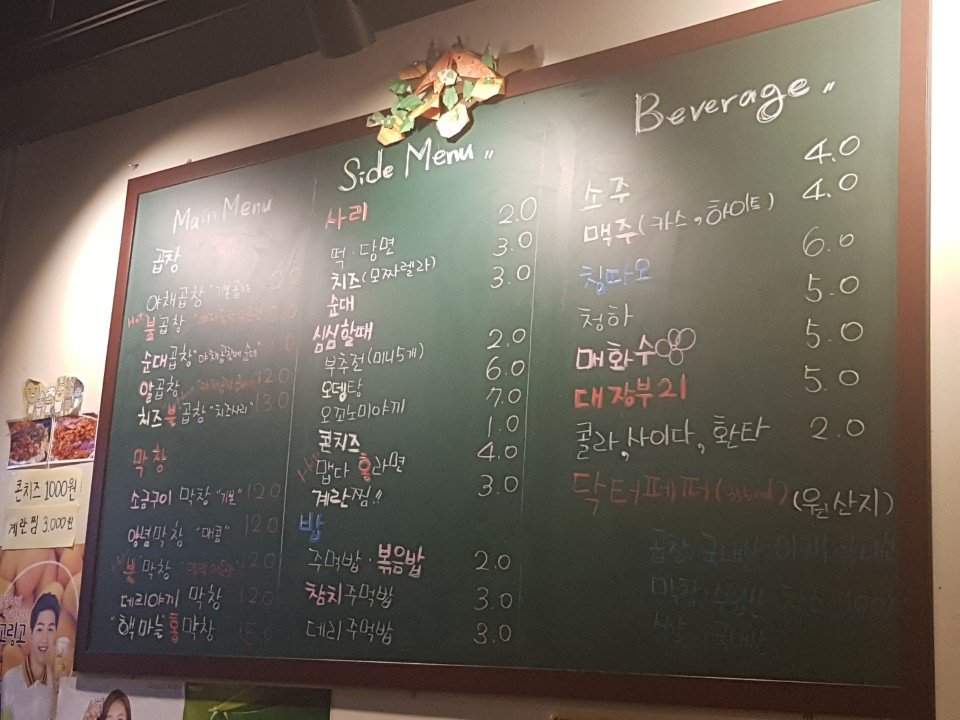 Main Menu
곱창
야채곱창 "기본곱창"
Hot 불곱창
순대곱창 "야채곱창에 순대"
알곱창 12.0
치즈불곱창 "치즈사리" 13.0
막창
소금구이 막창 "기본" 12.0
양념막창 "매콤" 12.0
불막창 12.0
데리야끼 막창 12.0
"핵마늘홀막창 15.0
Side Menu 〃
사리 2.0
떡·당면 3.0
치즈(모짜렐라) 3.0
순대
심심할때 2.0
부추전(미니5개) 6.0
오뎅탕 7.0
오꼬노미야끼 1.0
콘치즈 4.0
맵다 홀라면 3.0
계란찜!!
밥
주먹밥·볶음밥 2.0
참치주먹밥 3.0
데리주먹밥 3.0
Beverage 〃
4.0
소주 4.0
맥주(카스,하이트) 6.0
칭따오 5.0
청하 5.0
매화수 5.0
대장부21 2.0
콜라,사이다,환타
닥터페퍼(355ml) (원산지)
곱창 국내산
콘치즈 1000원
계란찜 3,000원
고링고